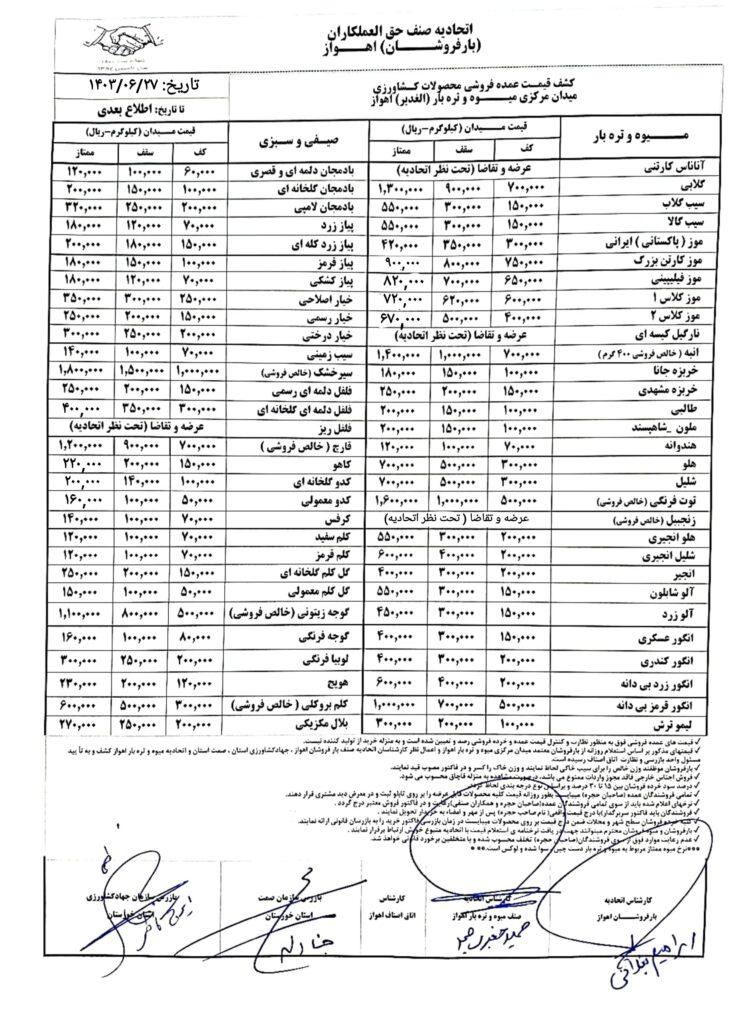 اتحادیه صنف حق العملکاران
(بارفروشان) اهواز
تاریخ: ۱۴۰۳/۰۶/۲۷
تا تاریخ: اطلاع بعدی
کشف قیمت عمده فروشی محصولات کشاورزی
میدان مرکزی میوه و تره بار (الغدیر) اهواز
میوه و تره بار قیمت میدان (کیلوگرم-ریال) صیفی و سبزی قیمت میدان (کیلوگرم-ریال)
کف سقف ممتاز کف سقف ممتاز
آناناس کارتنی عرضه و تقاضا (تحت نظر اتحادیه) بادمجان دلمه ای و قصری ۶۰,۰۰۰ ۱۰۰,۰۰۰ ۱۲۰,۰۰۰
گلابی ۷۰۰,۰۰۰ ۹۰۰,۰۰۰ ۱,۳۰۰,۰۰۰ بادمجان گلخانه ای ۱۰۰,۰۰۰ ۱۵۰,۰۰۰ ۲۰۰,۰۰۰
سیب گلاب ۱۵۰,۰۰۰ ۳۰۰,۰۰۰ ۵۵۰,۰۰۰ بادمجان لامپی ۲۰۰,۰۰۰ ۲۵۰,۰۰۰ ۳۲۰,۰۰۰
سیب گالا ۱۵۰,۰۰۰ ۳۰۰,۰۰۰ ۵۵۰,۰۰۰ پیاز زرد ۷۰,۰۰۰ ۱۲۰,۰۰۰ ۱۸۰,۰۰۰
موز ( پاکستانی ) ایرانی ۳۰۰,۰۰۰ ۳۵۰,۰۰۰ ۴۲۰,۰۰۰ پیاز زرد کله ای ۱۵۰,۰۰۰ ۱۸۰,۰۰۰ ۲۰۰,۰۰۰
موز کارتن بزرگ ۷۵۰,۰۰۰ ۸۰۰,۰۰۰ ۹۰۰,۰۰۰ پیاز قرمز ۱۰۰,۰۰۰ ۱۵۰,۰۰۰ ۱۸۰,۰۰۰
موز فیلیپینی ۶۵۰,۰۰۰ ۷۰۰,۰۰۰ ۸۲۰,۰۰۰ پیاز کشکی ۷۰,۰۰۰ ۱۲۰,۰۰۰ ۱۸۰,۰۰۰
موز کلاس ۱ ۶۰۰,۰۰۰ ۶۲۰,۰۰۰ ۷۲۰,۰۰۰ خیار اصلاحی ۲۵۰,۰۰۰ ۳۰۰,۰۰۰ ۳۵۰,۰۰۰
موز کلاس ۲ ۴۰۰,۰۰۰ ۵۰۰,۰۰۰ ۶۷۰,۰۰۰ خیار رسمی ۱۵۰,۰۰۰ ۲۰۰,۰۰۰ ۲۵۰,۰۰۰
نارگیل کیسه ای عرضه و تقاضا (تحت نظر اتحادیه) خیار درختی ۲۰۰,۰۰۰ ۲۵۰,۰۰۰ ۳۰۰,۰۰۰
انبه ( خالص فروشی ۴۰۰ گرم ) ۷۰۰,۰۰۰ ۱,۰۰۰,۰۰۰ ۱,۴۰۰,۰۰۰ سیب زمینی ۷۰,۰۰۰ ۱۰۰,۰۰۰ ۱۴۰,۰۰۰
خربزه جانا ۱۰۰,۰۰۰ ۱۵۰,۰۰۰ ۱۸۰,۰۰۰ سیرخشک (خالص فروشی) ۱,۰۰۰,۰۰۰ ۱,۵۰۰,۰۰۰ ۱,۸۰۰,۰۰۰
خربزه مشهدی ۱۵۰,۰۰۰ ۲۰۰,۰۰۰ ۲۵۰,۰۰۰ فلفل دلمه ای رسمی ۱۵۰,۰۰۰ ۲۰۰,۰۰۰ ۲۵۰,۰۰۰
طالبی ۱۰۰,۰۰۰ ۱۵۰,۰۰۰ ۲۰۰,۰۰۰ فلفل دلمه ای گلخانه ای ۳۰۰,۰۰۰ ۳۵۰,۰۰۰ ۴۰۰,۰۰۰
ملون _شاهپسند ۱۰۰,۰۰۰ ۱۵۰,۰۰۰ ۲۰۰,۰۰۰ فلفل ریز عرضه و تقاضا (تحت نظر اتحادیه)
هندوانه ۷۰,۰۰۰ ۱۰۰,۰۰۰ ۱۲۰,۰۰۰ قارچ ( خالص فروشی ) ۷۰۰,۰۰۰ ۹۰۰,۰۰۰ ۱,۲۰۰,۰۰۰
هلو ۳۰۰,۰۰۰ ۵۰۰,۰۰۰ ۷۰۰,۰۰۰ کاهو ۱۵۰,۰۰۰ ۲۰۰,۰۰۰ ۲۲۰,۰۰۰
شلیل ۳۰۰,۰۰۰ ۵۰۰,۰۰۰ ۷۰۰,۰۰۰ کدو گلخانه ای ۱۰۰,۰۰۰ ۱۴۰,۰۰۰ ۲۰۰,۰۰۰
توت فرنگی (خالص فروشی) ۵۰۰,۰۰۰ ۱,۰۰۰,۰۰۰ ۱,۶۰۰,۰۰۰ کدو معمولی ۵۰,۰۰۰ ۱۰۰,۰۰۰ ۱۶۰,۰۰۰
زنجبیل (خالص فروشی) عرضه و تقاضا ( تحت نظر اتحادیه) کرفس ۷۰,۰۰۰ ۱۰۰,۰۰۰ ۱۴۰,۰۰۰
هلو انجیری ۲۰۰,۰۰۰ ۳۰۰,۰۰۰ ۵۵۰,۰۰۰ کلم سفید ۷۰,۰۰۰ ۱۰۰,۰۰۰ ۱۲۰,۰۰۰
شلیل انجیری ۲۰۰,۰۰۰ ۴۰۰,۰۰۰ ۶۰۰,۰۰۰ کلم قرمز ۷۰,۰۰۰ ۱۰۰,۰۰۰ ۱۲۰,۰۰۰
انجیر ۲۰۰,۰۰۰ ۳۰۰,۰۰۰ ۴۰۰,۰۰۰ گل کلم گلخانه ای ۱۵۰,۰۰۰ ۲۰۰,۰۰۰ ۲۵۰,۰۰۰
آلو شابلون ۱۵۰,۰۰۰ ۳۰۰,۰۰۰ ۵۵۰,۰۰۰ گل کلم معمولی ۵۰,۰۰۰ ۱۰۰,۰۰۰ ۱۵۰,۰۰۰
آلو زرد ۱۵۰,۰۰۰ ۳۰۰,۰۰۰ ۴۵۰,۰۰۰ گوجه زیتونی (خالص فروشی) ۵۰۰,۰۰۰ ۸۰۰,۰۰۰ ۱,۱۰۰,۰۰۰
انگور عسکری ۱۵۰,۰۰۰ ۳۰۰,۰۰۰ ۴۰۰,۰۰۰ گوجه فرنگی ۸۰,۰۰۰ ۱۰۰,۰۰۰ ۱۶۰,۰۰۰
انگور کندری ۲۰۰,۰۰۰ ۳۰۰,۰۰۰ ۴۰۰,۰۰۰ لوبیا فرنگی ۲۰۰,۰۰۰ ۲۵۰,۰۰۰ ۳۰۰,۰۰۰
انگور زرد بی دانه ۲۰۰,۰۰۰ ۴۰۰,۰۰۰ ۶۰۰,۰۰۰ هویج ۱۲۰,۰۰۰ ۲۰۰,۰۰۰ ۲۳۰,۰۰۰
انگور قرمز بی دانه ۵۰۰,۰۰۰ ۷۰۰,۰۰۰ ۱,۰۰۰,۰۰۰ کلم بروکلی ( خالص فروشی) ۳۰۰,۰۰۰ ۵۰۰,۰۰۰ ۶۰۰,۰۰۰
لیمو ترش ۱۰۰,۰۰۰ ۲۰۰,۰۰۰ ۳۰۰,۰۰۰ بلال مکزیکی ۲۰۰,۰۰۰ ۲۵۰,۰۰۰ ۲۷۰,۰۰۰
✓ قیمت های عمده فروشی فوق به منظور نظارت و کنترل قیمت عمده و خرده فروشی رصد و تعیین شده است و به منزله خرید از تولید کننده نیست.
✓ قیمتهای مذکور بر اساس استعلام روزانه از بارفروشان معتمد میدان مرکزی میوه و تره بار اهواز و اعمال نظر کارشناسان اتحادیه صنف بار فروشان اهواز ، جهادکشاورزی استان ، صمت استان و اتحادیه میوه و تره بار اهواز کشف و به تأیید
مسئول واحد بازرسی و نظارت اتاق اصناف رسیده است.
✓ بارفروشان موظفند وزن خالص را برای سیب خاکی لحاظ نمایند و وزن خاک را کسر و در فاکتور مصوب قید نمایند.
✓ فروش اجناس خارجی فاقد مجوز واردات ممنوع می باشد، درصورت مشاهده به منزله قاچاق محسوب می شود.
✓ درصد سود خرده فروشان بین ۱۵ تا ۳۰ درصد و براساس نوع درجه بندی لحاظ گردد.
کارشناس اتحادیه
بارفروشان اهواز
کارشناس اتحادیه
صنف میوه و تره بار اهواز
کارشناس
اتاق اصناف اهواز
بازرس سازمان صمت
استان خوزستان
بازرس سازمان جهادکشاورزی
استان خوزستان